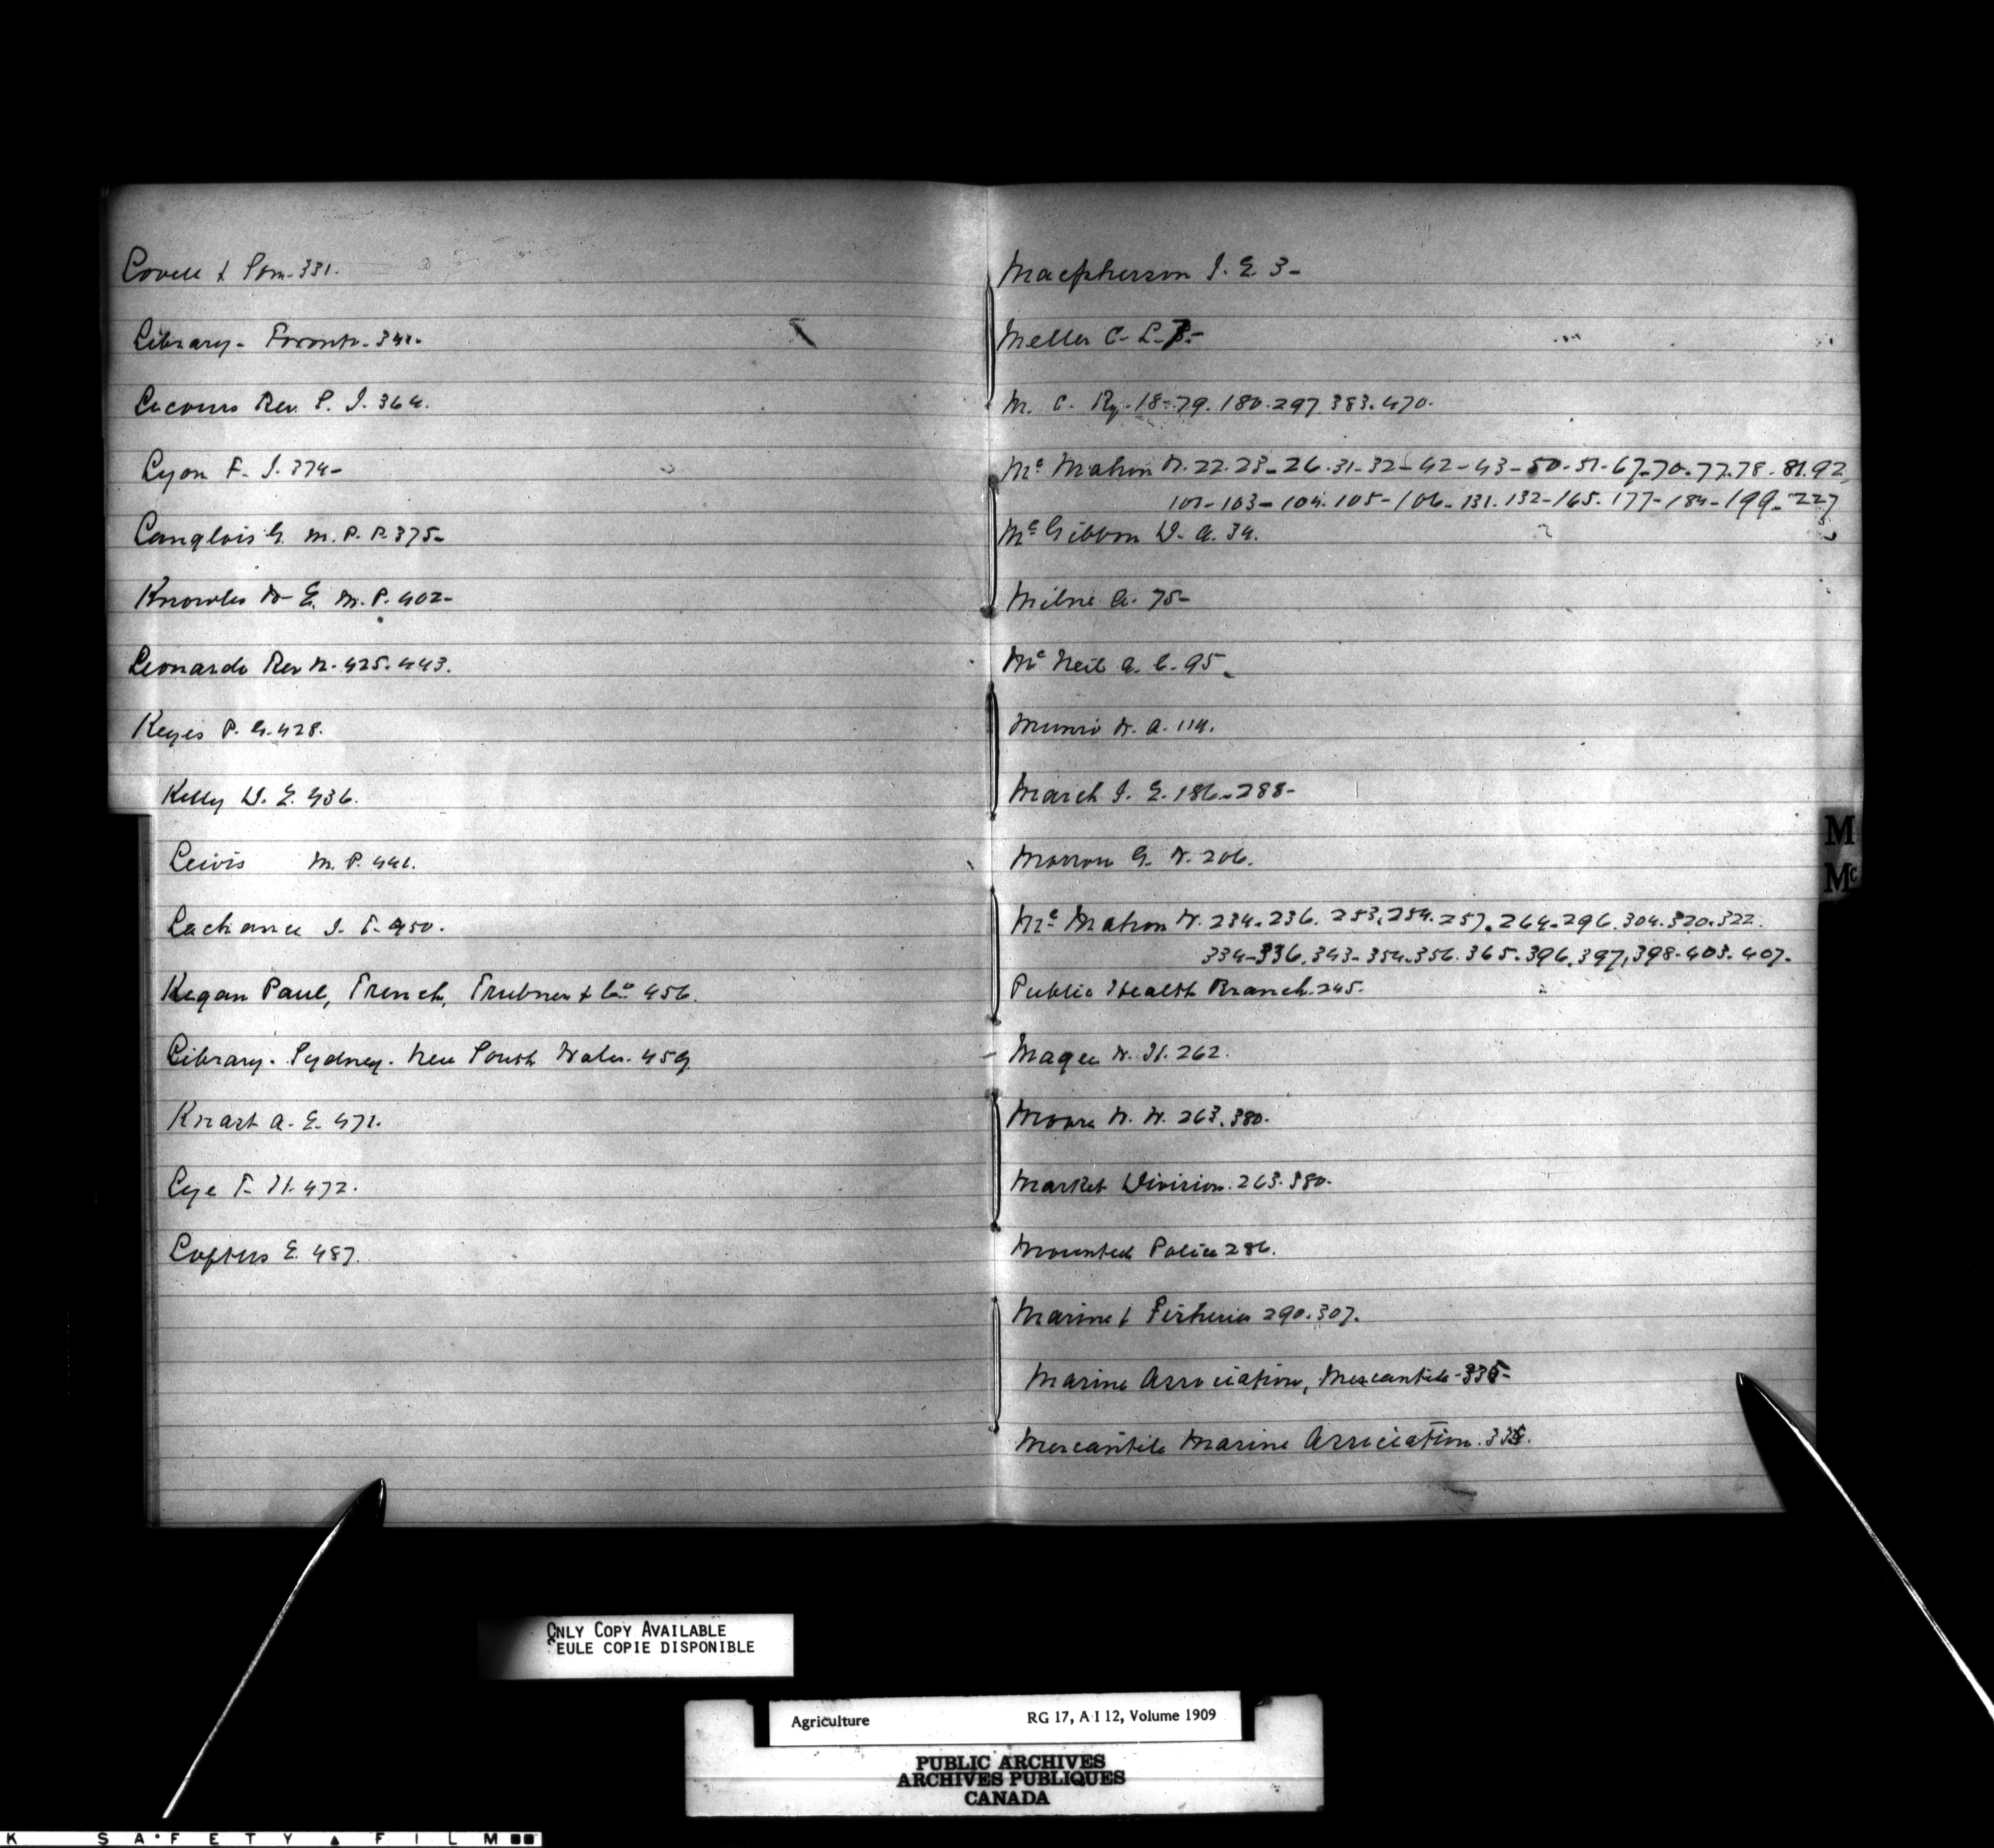 Lovell & Son. 331.
Library - Toronto - 341.
Lecours Rev. P. J. 364.
Lyon F. J. 374-
Langlois G. M. P. P. 375-
Knowles W- E. M. P. 402-
Leonardo Rev N. 425. 443.
Keyes P. G. 428.
Kelly D. E. 436.
Lewis M. P. 441.
Lachance J. T. 450.
Kegan Paul, Trench, Trubner & Co 456.
Library. Sydney. New South Wales. 459.
Knast A. E. 471.
Lye T. H. 472.
Loftus E. 487.
Macpherson J. E. 3-
Meller C- L.
M. C. Ry. 18-79. 180. 297. 383. 470.
Mc Mahon W. 22. 23- 26. 31- 32- 42- 43- 50- 51- 67- 70. 77. 78. 81. 92.
101- 103- 104. 105- 106. 131. 132- 165. 177- 184- 199. 227
Mc Gibbon D. A. 34.
Milne A. 75-
Mc Neil A. C. 95.
Munro W. A. 114.
March J. E. 186. 288-
Morrow G. W. 206.
Mc Mahon W. 234. 236. 253. 254. 257. 264. 296. 304. 320. 322.
334- 336. 343- 354. 356. 365. 396. 397, 398. 403. 407.
Public Health Branch. 245.
Magee W. H. 262.
Moore W. W. 263. 380.
Market Division. 263. 380.
Mounted Police 286.
Marine & Fisheries 290. 307.
Marine Association, Mercantile - 335-
Mercantile Marine Association. 335.
M
Mc
ONLY COPY AVAILABLE
SEULE COPIE DISPONIBLE
Agriculture RG 17, A I 12, Volume 1909
PUBLIC ARCHIVES
ARCHIVES PUBLIQUES
CANADA
K SAFETY ▲ FILM